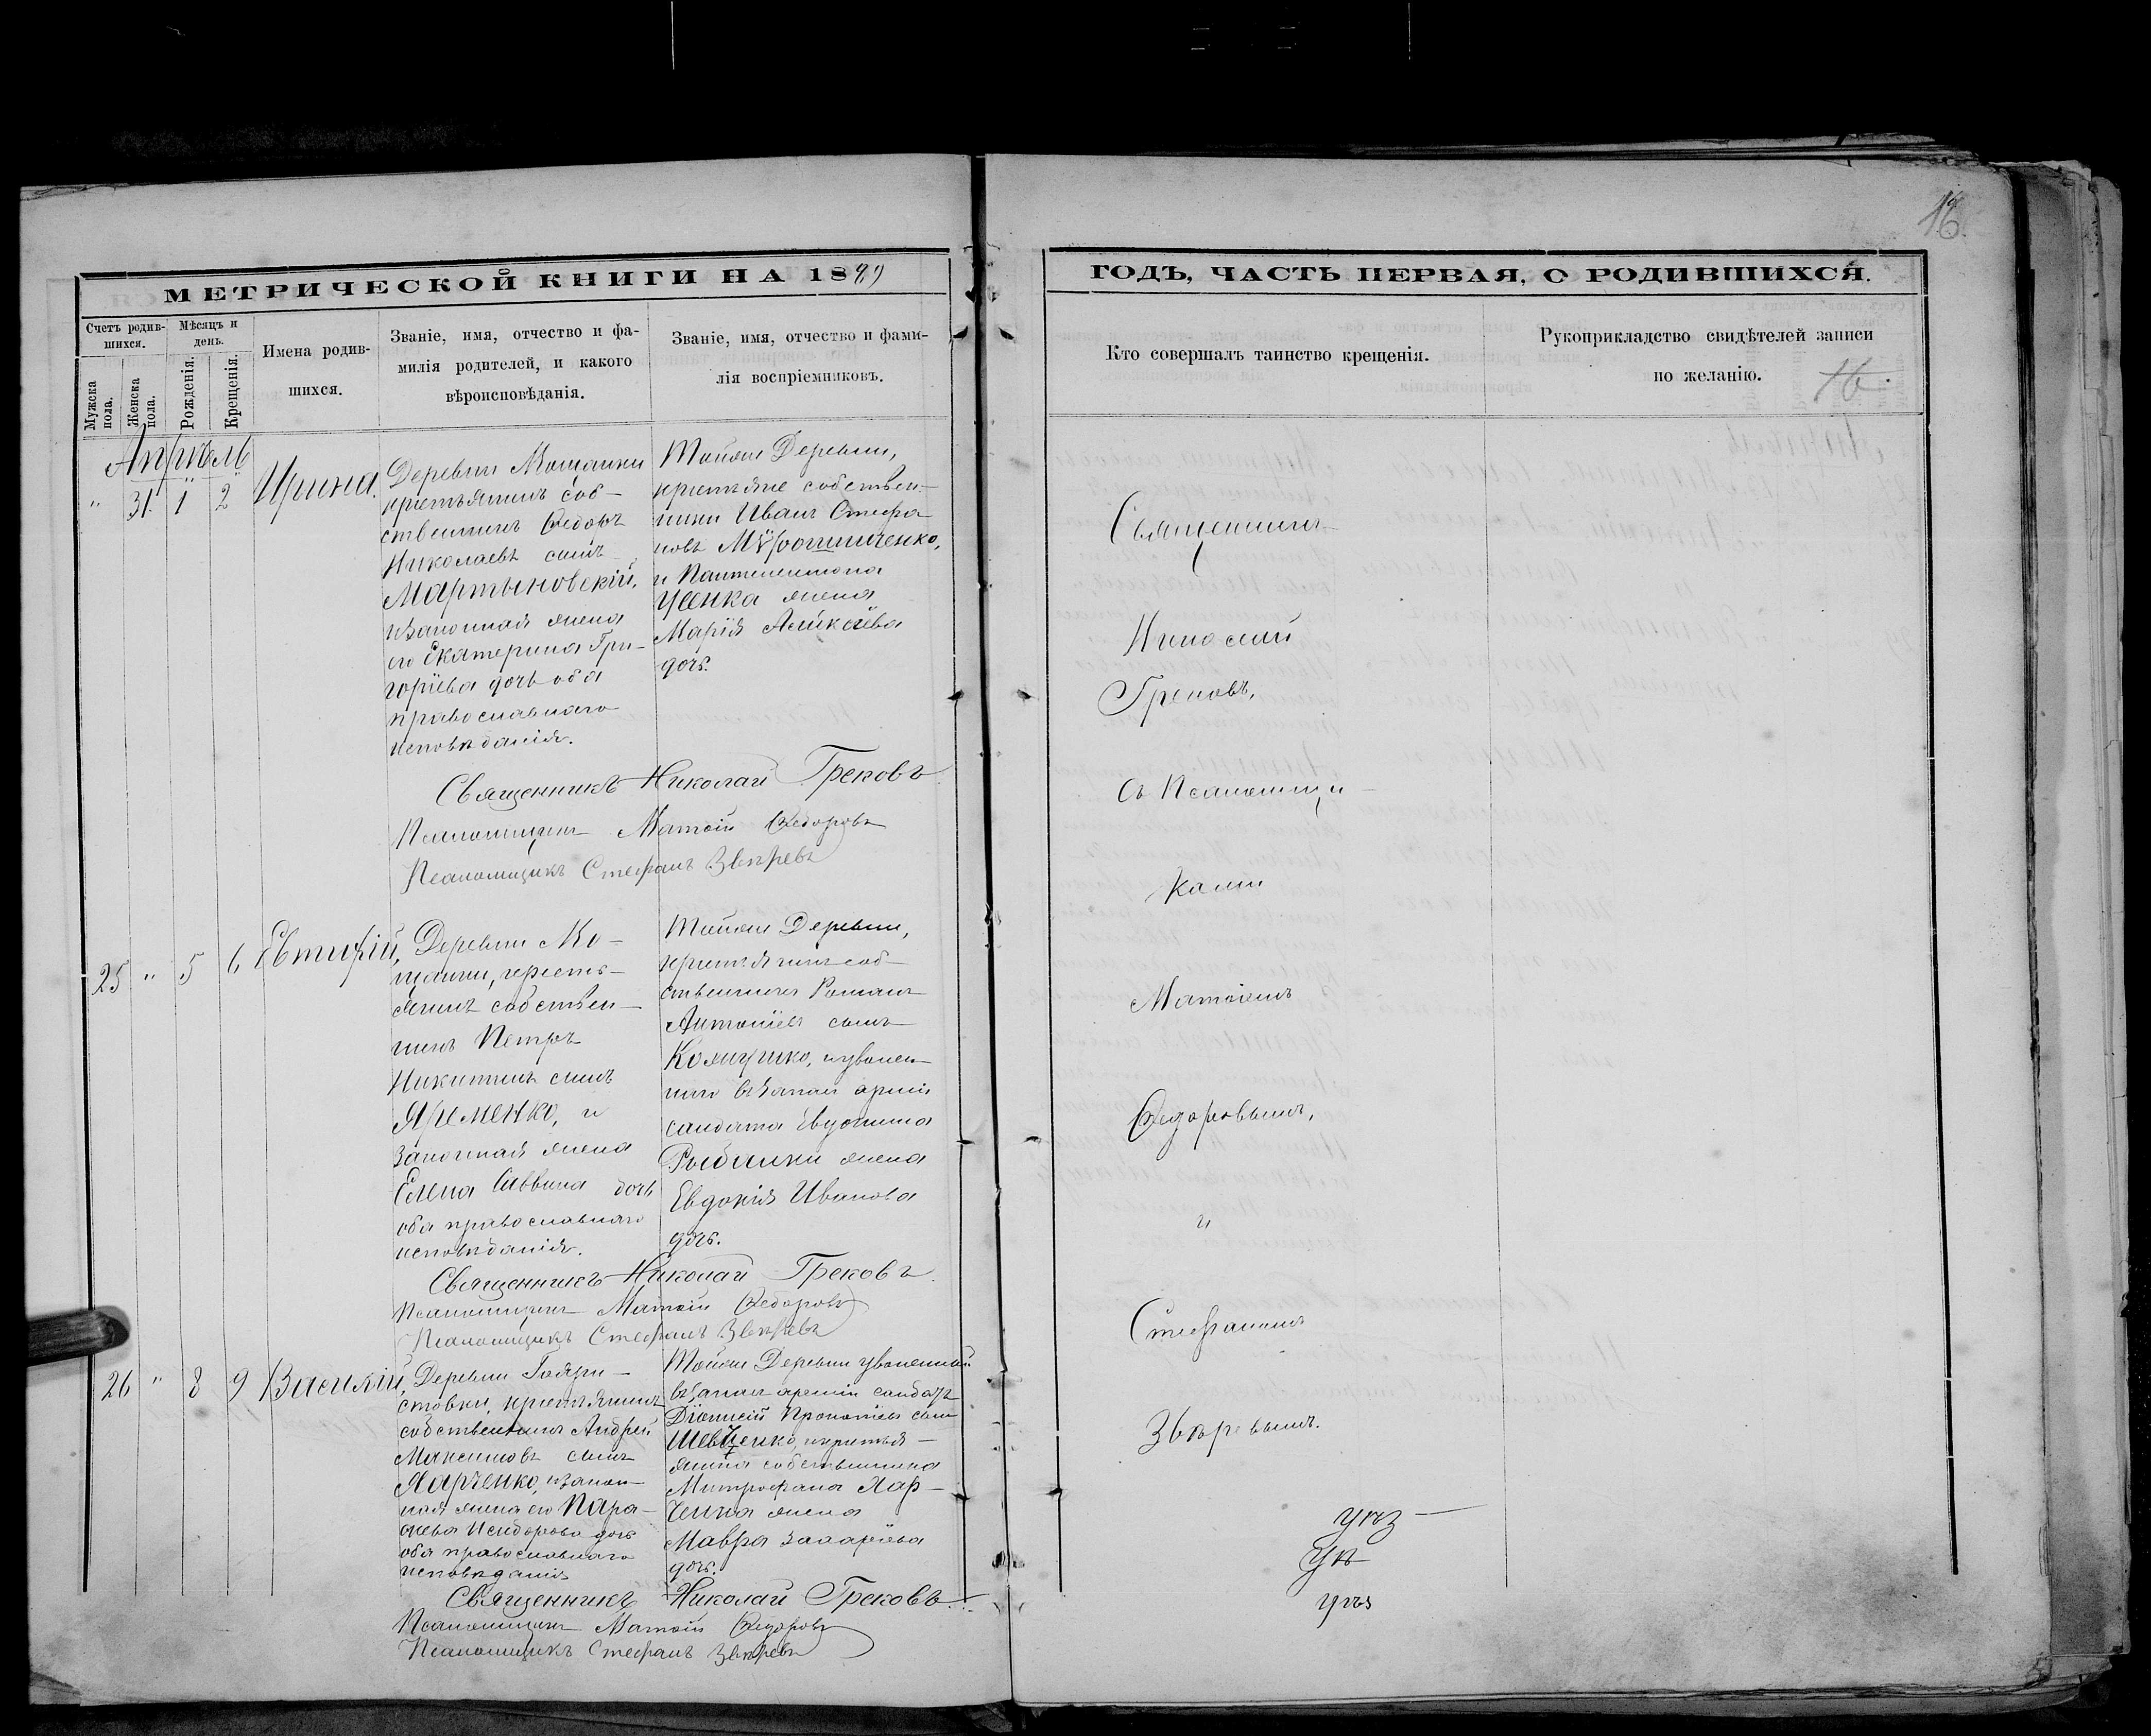 16.
МЕТРИЧЕСКОЙ КНИГИ НА 1889
ГОДЪ, ЧАСТЬ ПЕРВАЯ, О РОДИВШИХСЯ.
Счетъ родив-
шихся.
Мужска
пола.
Женска
пола.
Мѣсяцъ и
день.
Рожденія.
Крещенія.
Имена родив-
шихся.
Званіе, имя, отчество и фа-
милія родителей, и какого
вѣроисповѣданія.
Званіе, имя, отчество и фами-
лія воспріемниковъ.
Кто совершалъ таинство крещенія.
Рукоприкладство свидѣтелей записи
по желанію.
16.
Апрѣль
" 31. 1 2
Ирина.
Деревни
крестьянинъ соб-
ственникъ Ѳедоръ
Николаевъ сынъ
Мартыновскій,
и законная жена
его Екатерина Гри-
горіева дочь оба
православнаго
исповѣданія.
Тойже Деревни,
крестьяне собствен-
ники Иванъ Стефа
новъ Мірошниченко,
и Пантелеимона
Усенка жена
Марія Алексіева
дочь.
Священникъ Николай Грековъ
Псаломщикъ Матѳій Ѳедоровъ
Псаломщикъ Стефанъ Звѣревъ
25 " 5 6
Евтихій,
Деревни Мо-
кресть-
янинъ собствен-
никъ Петръ
Никитинъ сынъ
Яременко, и
законная жена
Елена Саввина дочь
оба православнаго
исповѣданія.
Тойже Деревни,
крестьянинъ соб-
ственникъ Романъ
Антоніевъ сынъ
и уволен-
наго въ запас арміи
солдата Евдокима
Рыбалки жена
Евдокія Иванова
дочь.
Священникъ Николай Грековъ
Псаломщикъ Матѳій Ѳедоровъ
Псаломщикъ Стефанъ Звѣревъ
26 " 8 9
Василій,
Деревни
стовки, крестьянинъ
собственникъ Андрей
Максимовъ сынъ
Харченко, и закон-
ная жена его Пара-
скева Исидорова дочь
оба православнаго
исповѣданія
Тойже Деревни уволенный
въ запас арміи солдатъ
Діонисій Прокопіевъ сынъ
Шевченко, и крестья-
янина собственника
Митрофана Хар-
ченка жена
Мавра Захаріева
дочь.
Священникъ Николай Грековъ
Псаломщикъ Матѳій Ѳедоровъ
Псаломщикъ Стефанъ Звѣревъ
Священникъ
Николай
Грековъ,
съ Псаломщи-
ками
Матѳіемъ
Ѳедоровымъ,
и
Стефаномъ
Звѣревымъ.